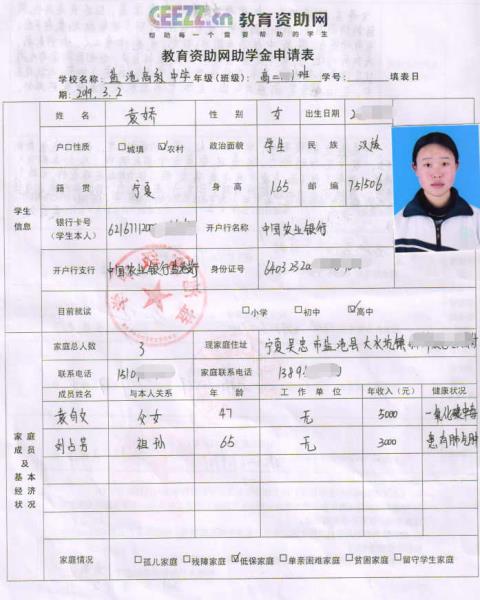 CEEZZ.cn 教育资助网
帮助每一个需要帮助的学生
教育资助网助学金申请表
学校名称：盐池高级中学 年级（班级）：高二.1班 学号： 填表日
期：2019.3.2
姓名 袁娇 性别 女 出生日期 2
户口性质 □城填 ☑农村 政治面貌 学生 民族 汉族
籍贯 宁夏 身高 1.65 邮编 751506
学生
信息
银行卡号
（学生本人） 621671120 开户行名称 中国农业银行
开户行支行 中国农业银行盐池支行 身份证号 6403232
目前就读 □小学 □初中 ☑高中
家庭总人数 3 现家庭住址 宁夏吴忠市盐池县大水坑镇
联系电话 1510 家庭联系电话 1389
成员姓名 与本人关系 年龄 工作单位 年收入（元） 健康状况
父女 47 无 5000 一氧化碳中毒
刘占芳 祖孙 65 无 3000
家庭
成员
及
基本
经济
状况
家庭情况 □孤儿家庭 □残障家庭 ☑低保家庭 □单亲困难家庭 □贫困家庭 □留守学生家庭